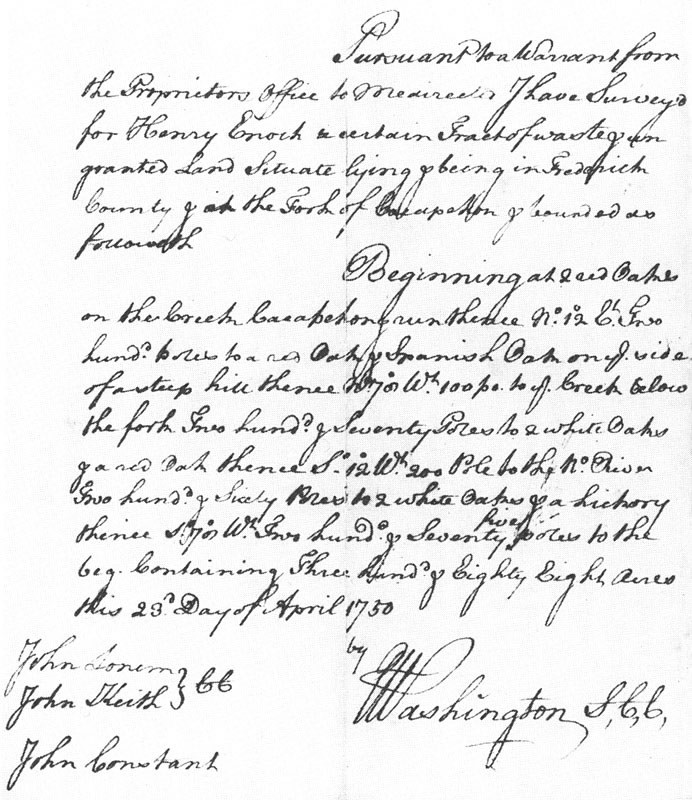 Pursuant to a Warrant from
the Proprietors Office to me directed I have Survey'd
for Henry Enoch a certain Tract of waste & un
granted Land Situate lying & being in Frederick
County & at the Fork of Cacapehon & bounded as
followeth
Beginning at 2 red Oakes
on the Creek Cacapehon & run thence No. 12 Et. Two
hund.d poles to a red Oak & Spanish Oak on ye. side
of a steep hill thence No 78 Wt. 100 po. to ye. Creek below
the fork Two hund.d & Seventy Poles to 2 white Oaks
& a red Oak thence So. 12 Wt. 200 Pole to the No. River
Two hund.d & Sixty Poles to 2 white Oakes & a hickory
thence So. 78 Wt. Two hund.d & Seventy five poles to the
beg. Containing Three hund.d & Eighty Eight Acres
this 23.d Day of April 1750
by
John Lonem } CC
John Keith
Washington S,C,C,
John Constant